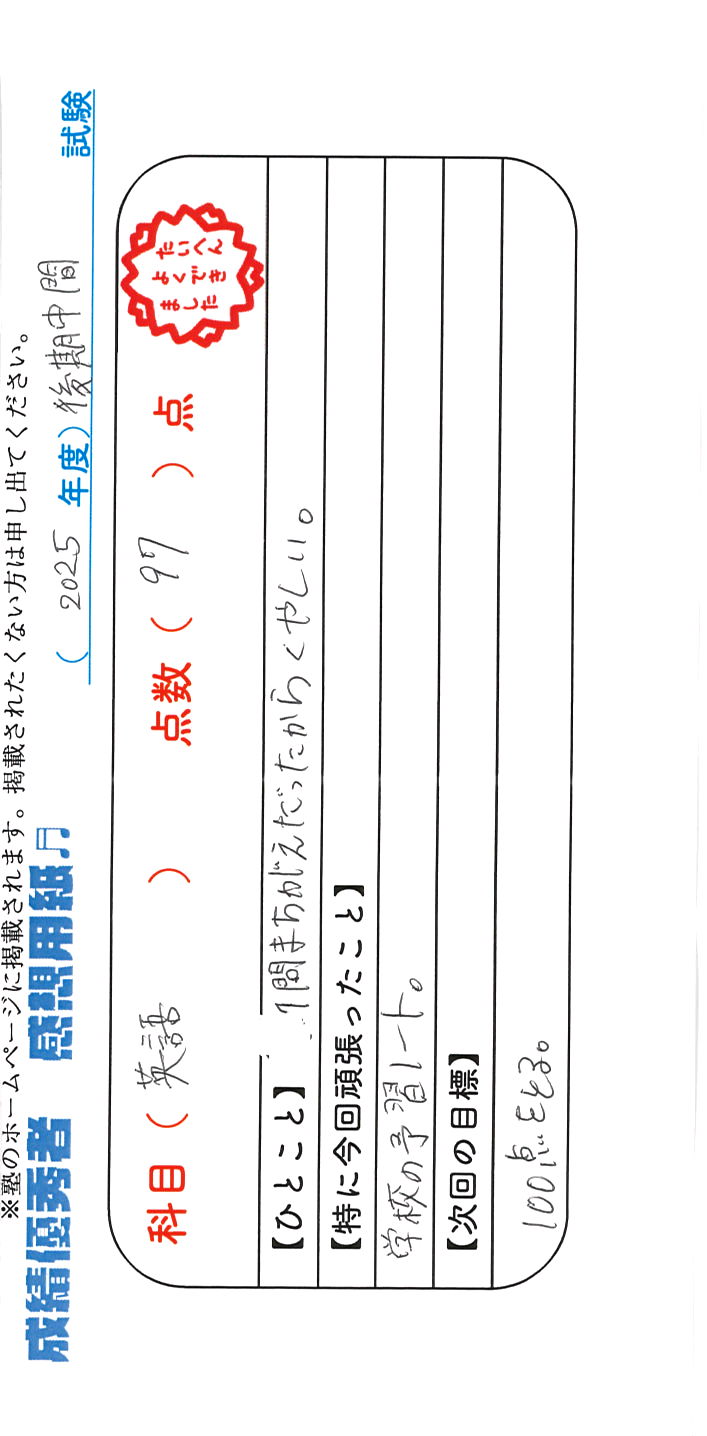 ※塾のホームページに掲載されます。掲載されたくない方は申し出てください。
成績優秀者 感想用紙♬
(2025 年度)後期中間 試験
科目(英語) 点数(97)点
たいへん
よくでき
ました
【ひとこと】1問まちがえだったからくやしい。
【特に今回頑張ったこと】
学校の予習ノート。
【次回の目標】
100点をとる。